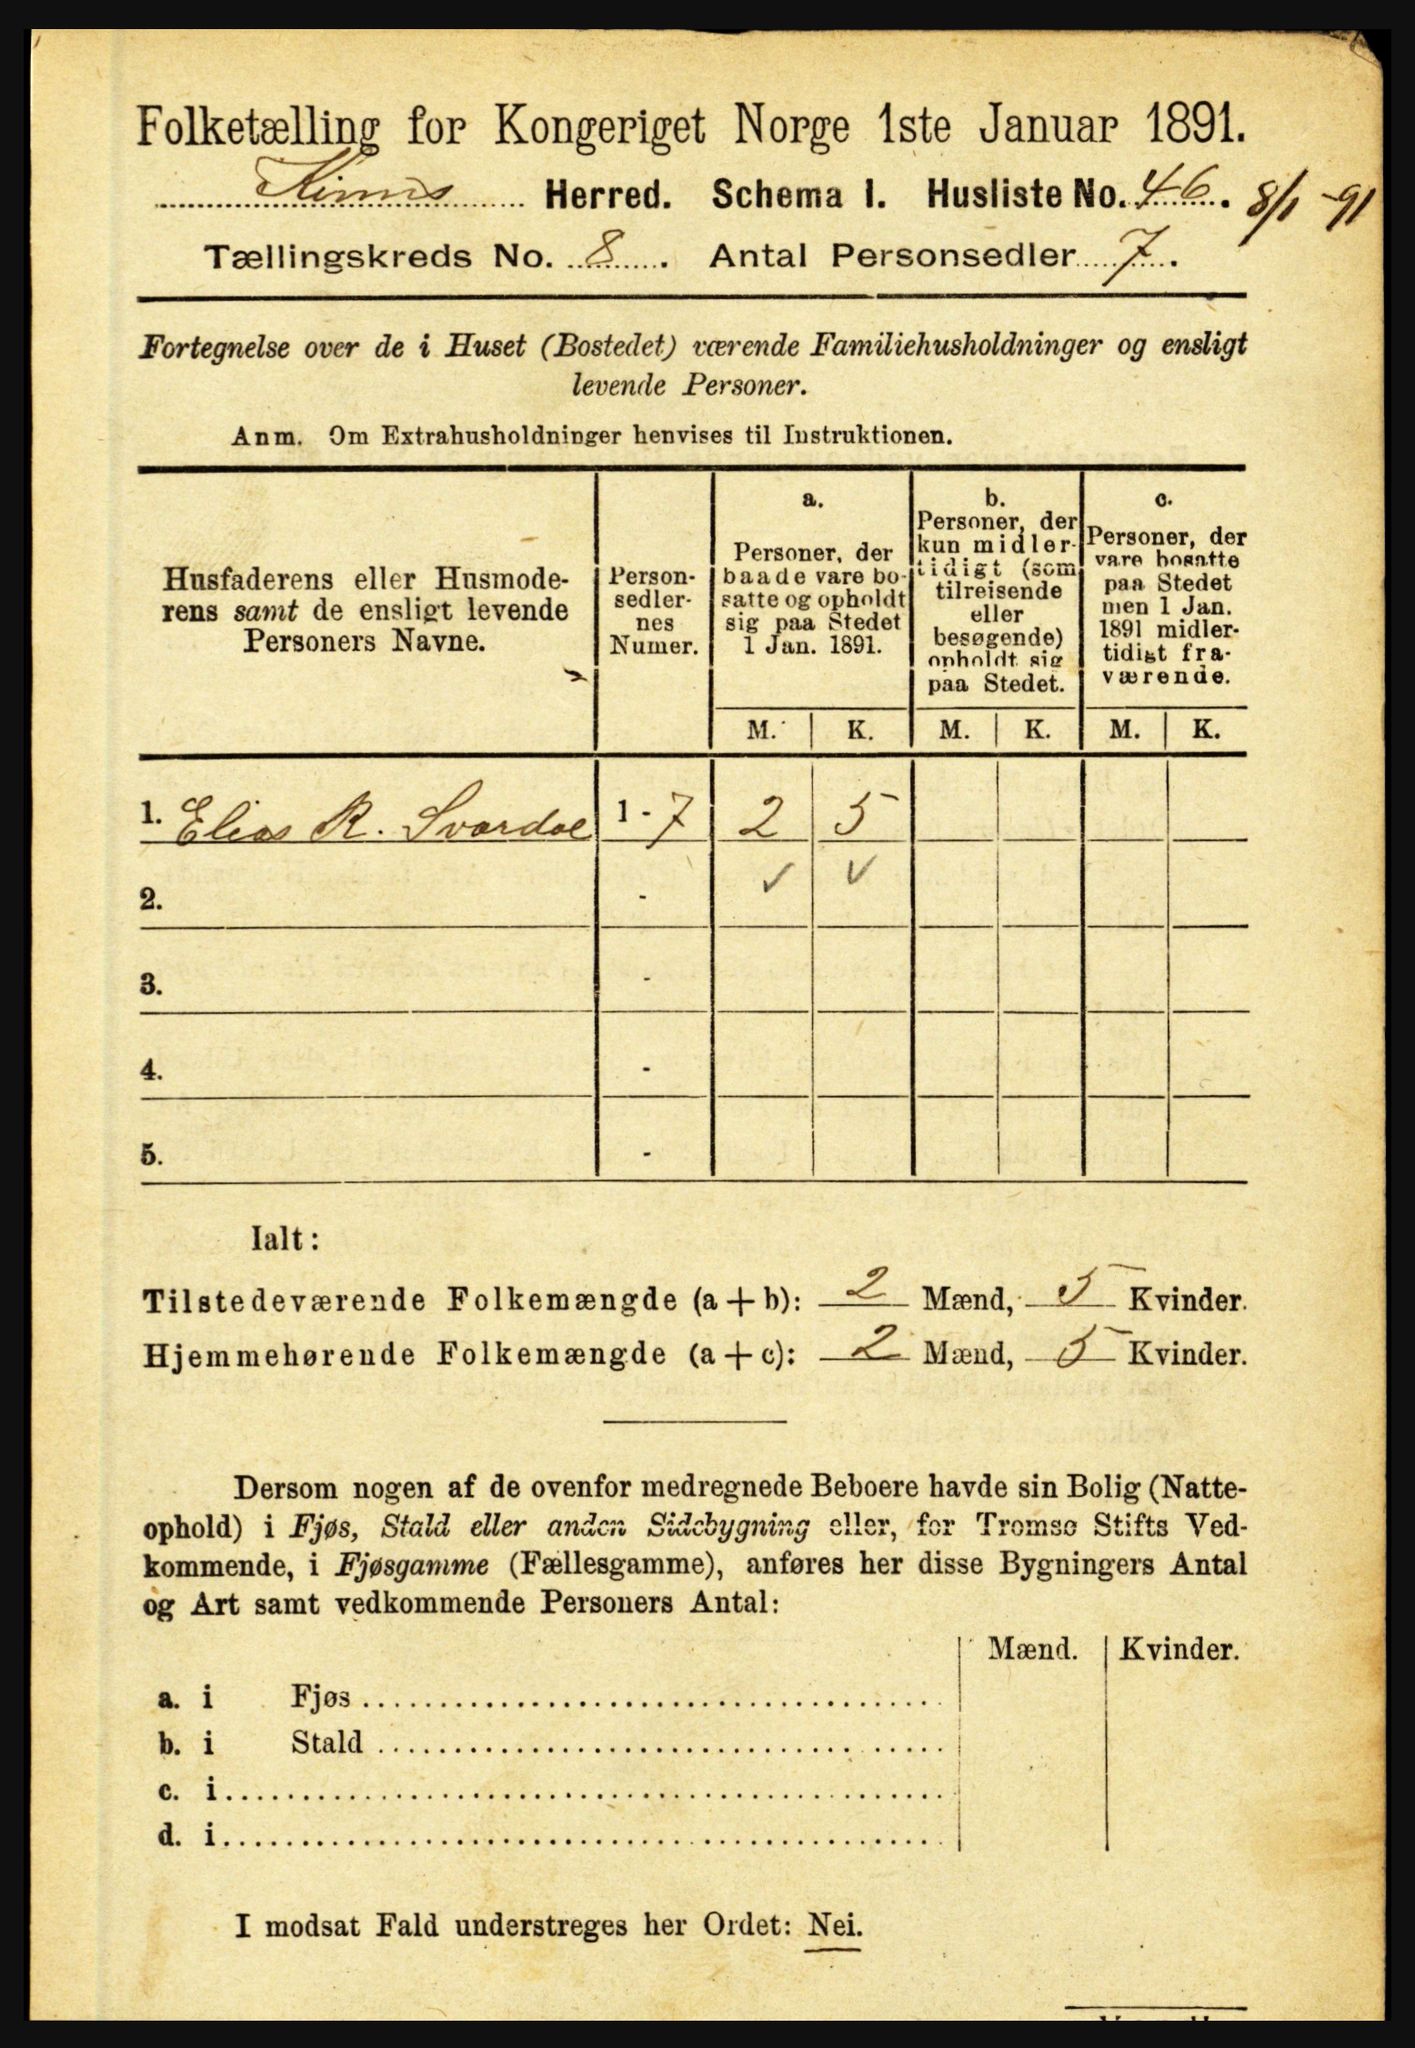 Folketælling for Kongeriget Norge 1ste Januar 1891.
Kinns Herred. Schema I. Husliste No. 46. 8/1 -91
Tællingskreds No. 8. Antal Personsedler 7.
Fortegnelse over de i Huset (Bostedet) værende Familiehusholdninger og ensligt
levende Personer.
Anm. Om Extrahusholdninger henvises til Instruktionen.
Husfaderens eller Husmode-
rens samt de ensligt levende
Personers Navne.
Person-
sedler-
nes
Numer.
a.
Personer, der
baade vare bo-
satte og opholdt
sig paa Stedet
1 Jan. 1891.
b.
Personer, der
kun midler-
tidigt (som
tilreisende
eller
besøgende)
opholdt sig
paa Stedet.
c.
Personer, der
vare bosatte
paa Stedet
men 1 Jan.
1891 midler-
tidigt fra-
værende.
M. K. M. K. M. K.
1. Elias R. Svardal 1 - 7 2 5
2. - ✓ ✓
3. -
4. -
5. -
Ialt:
Tilstedeværende Folkemængde (a + b): 2 Mænd, 5 Kvinder.
Hjemmehørende Folkemængde (a + c): 2 Mænd, 5 Kvinder.
Dersom nogen af de ovenfor medregnede Beboere havde sin Bolig (Natte-
ophold) i Fjøs, Stald eller anden Sidebygning eller, for Tromsø Stifts Ved-
kommende, i Fjøsgamme (Fællesgamme), anføres her disse Bygningers Antal
og Art samt vedkommende Personers Antal:
Mænd. Kvinder.
a. i Fjøs
b. i Stald
c. i
d. i
I modsat Fald understreges her Ordet: Nei.